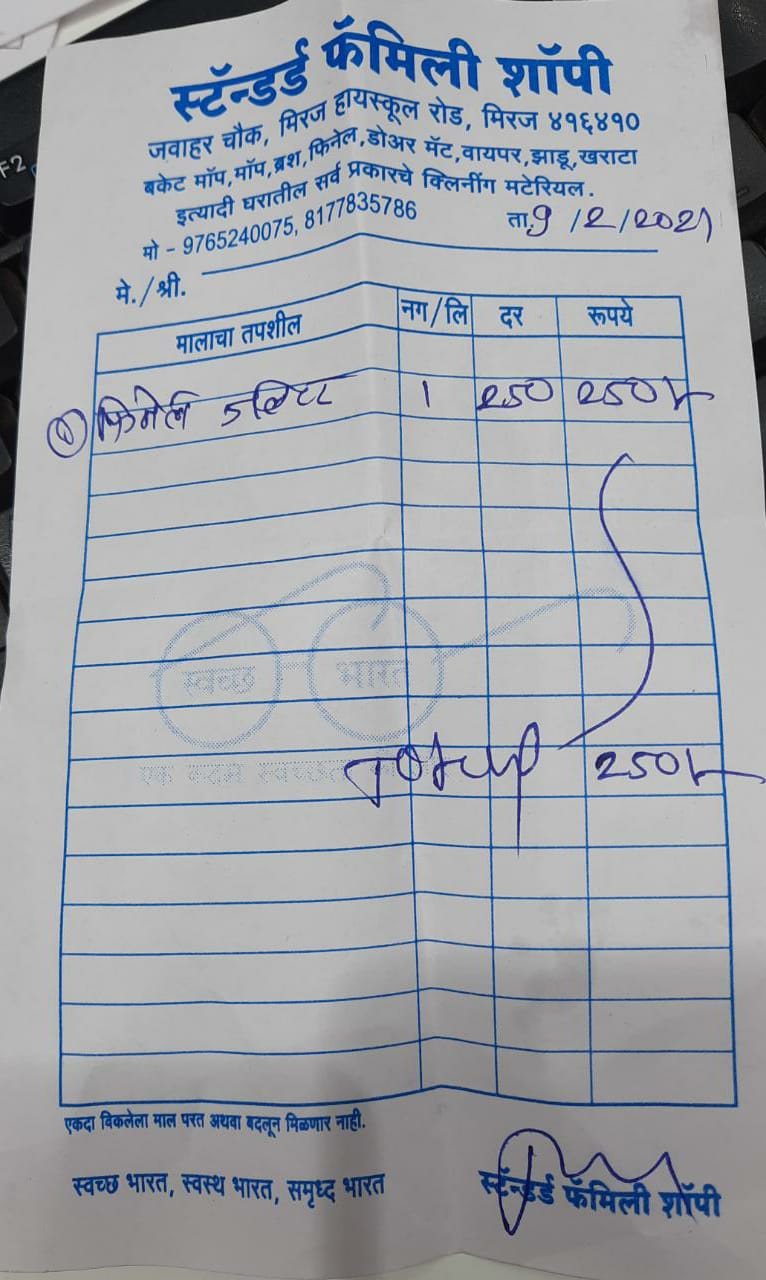 स्टॅन्डर्ड फॅमिली शॉपी
जवाहर चौक, मिरज हायस्कूल रोड, मिरज ४१६४१०
बकेट मॉप,मॉप,ब्रश,फिनेल,डोअर मॅट,वायपर,झाडू,खराटा
इत्यादी घरातील सर्व प्रकारचे क्लिनींग मटेरियल.
मो - 9765240075, 8177835786
ता.9/2/2021
मे./श्री.
मालाचा तपशील नग/लि दर रूपये
① फिनेल 5 लिटर 1 250 250/-
स्वच्छ भारत
एक कदम स्वच्छता
250/-
एकदा विकलेला माल परत अथवा बदलून मिळणार नाही.
स्वच्छ भारत, स्वस्थ भारत, समृध्द भारत
स्टॅन्डर्ड फॅमिली शॉपी
F2